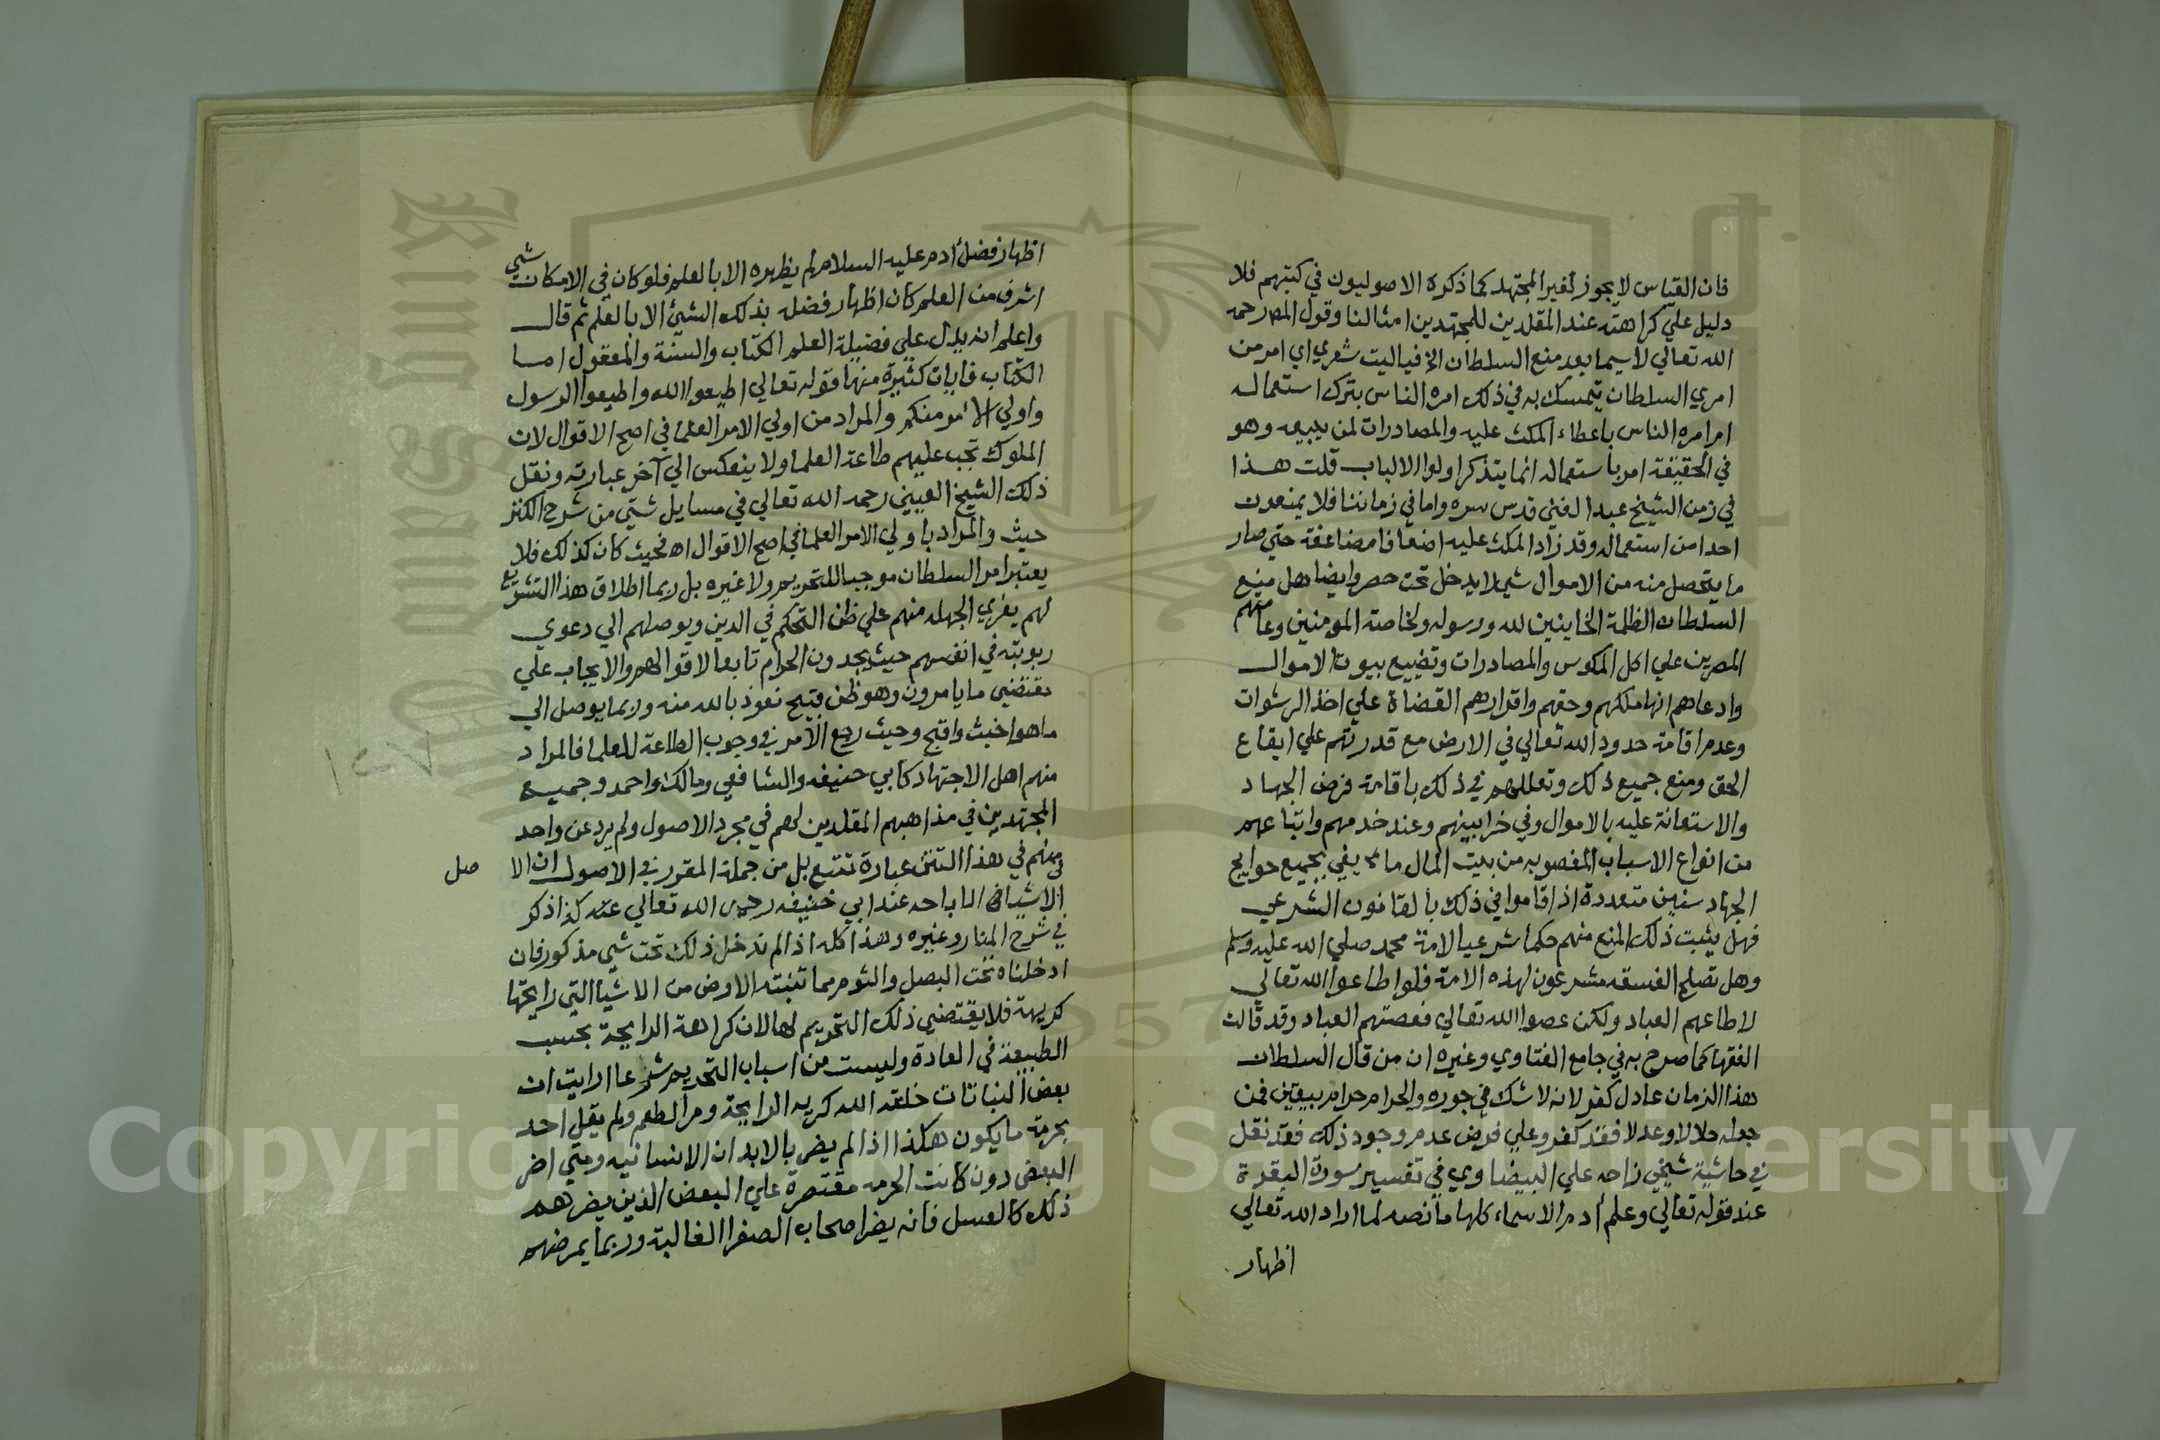 فان القياس لا يجوز لغير المجتهد كما ذكره الاصوليون في كتبهم فلا
دليل علي كراهته عند المقلدين للمجتهدين امثالنا وقول المص رحمه
الله تعالي لا سيما بعد منع السلطان الخ فياليت شعري اي امر من
امري السلطان يتمسك به في ذلك امره الناس بترك استعماله
ام امره الناس باعطاء المكث عليه والمصادرات لمن يبيعه وهو
في الحقيقة امر باستعماله انما يتذكر اولوا الالباب قلت هذا
في زمن الشيخ عبد الغني قدس سره واما في زماننا فلا يمنعون
احدا من استعماله وقد زاد المكث عليه اضعافا مضاعفة حتي صار
ما يتحصل منه من الاموال شي لا يدخل تحت حصر وايضا هل منع
السلطان الظلمة الخاينين لله ورسوله ولخاصة المومنين وعامتهم
المصرين علي اكل المكوس والمصادرات وتضييع بيوت الاموال
وادعاهم انها ملكهم وحقهم واقرارهم القضاة علي اخذ الرشوات
وعدم اقامة حدود الله تعالي في الارض مع قدرتهم علي ايقاع
الحق ومنع جميع ذلك وتعللهم في ذلك باقامة فرض الجهاد
والاستعانة عليه بالاموال وفي خزاينهم وعند خدمهم واتباعهم
من انواع الاسباب المغصوبه من بيت المال ما يفي بجميع حوايج
الجهاد سنين متعددة اذا قاموا في ذلك بالقانون الشرعي
فهل يثبت ذلك المنع منهم حكما شرعيا لامة محمد صلي الله عليه وسلم
وهل تصلح الفسقه مشرعون لهذه الامة فلو اطاعوا الله تعالي
لاطاعهم العباد ولكن عصوا الله تعالي فعصتهم العباد وقد قالت
الفقها كما صرح به في جامع الفتاوي وغيره ان من قال السلطان
هذا الزمان عادل كفر لانه لا شك في جوره والحرام حرام بيقين فمن
جعله حلالا وعدلا فقد كفر وعلي فرض عدم وجود ذلك فقد نقل
في حاشية شيخي زاده علي البيضاوي في تفسير سورة البقرة
عند قوله تعالي وعلم ادم الاسماء كلها ما نصه لما اراد الله تعالي
اظهار
اظهار فضل أدم عليه السلام لم يظهره الا بالعلم فلو كان في الامكان شي
اشرف من العلم كان اظهار فضله بذلك الشيئ الا بالعلم ثم قال
واعلم انه يدل علي فضيلة العلم الكتاب والسنة والمعقول اما
الكتاب فايات كثيرة منها قوله تعالي اطيعوا الله واطيعوا الرسول
واولي الامر منكم والمراد من اولي الامر العلما في اصح الاقوال لان
الملوك تجب عليهم طاعة العلما ولا ينعكس الي آخر عبارته ونقل
ذلك الشيخ العيني رحمه الله تعالي في مسايل شتي من شرح الكنز
حيث والمراد باولي الامر العلما في اصح الاقوال اه فحيث كان كذلك فلا
يعتبر امر السلطان موجبا للتحريم ولا غيره بل ربما اطلاق هذا التشريع
لهم يغري الجهله منهم علي ظن التحكم في الدين ويوصلهم الي دعوي
ربوبته في انفسهم حيث يجدون الحرام تابعا لاقوالهم والايجاب علي
مقتضي ما يامرون وهو ظن قبيح نعوذ بالله منه وربما يوصل الي
ما هو اخبث واقبح وحيث رجع الأمر في وجوب الطاعة للعلما فالمراد
منهم اهل الاجتهاد كابي حنيفه والشافعي ومالك واحمد وجميع
المجتهدين في مذاهبهم المقلدين لهم في مجرد الاصول ولم يرد عن واحد
منهم في هذا التتن عبارة تتبع بل من جملة المقرر في الاصول ان الا
صل
في الاشيا الاباحه عند ابي حنيفه رحمه الله تعالي عنه كذا ذكر
في شرح المنار وغيره وهذا كله اذا لم ندخل ذلك تحت شي مذكور فان
ادخلناه تحت البصل والثوم مما تنبته الارض من الاشيا التي رايحتها
كريهة فلا يقتضي ذلك التحريم لها لان كراهة الرايحة بحسب
الطبيعة في العادة وليست من اسباب التحريم شرعا ارايت ان
بعض النباتات خلقه الله كريه الرايحة ومر الطعم ولم يقل احد
بحرمة ما يكون هكذا اذا لم يضر بالابدان الانسانيه ومتي اضر
البعض دون كانت الحرمه مقتصرة علي البعض الذين يضرهم
ذلك كالعسل فانه يضر اصحاب الصفرا الغالبة وربما يمرضهم
Copyright © King Saud University
1957